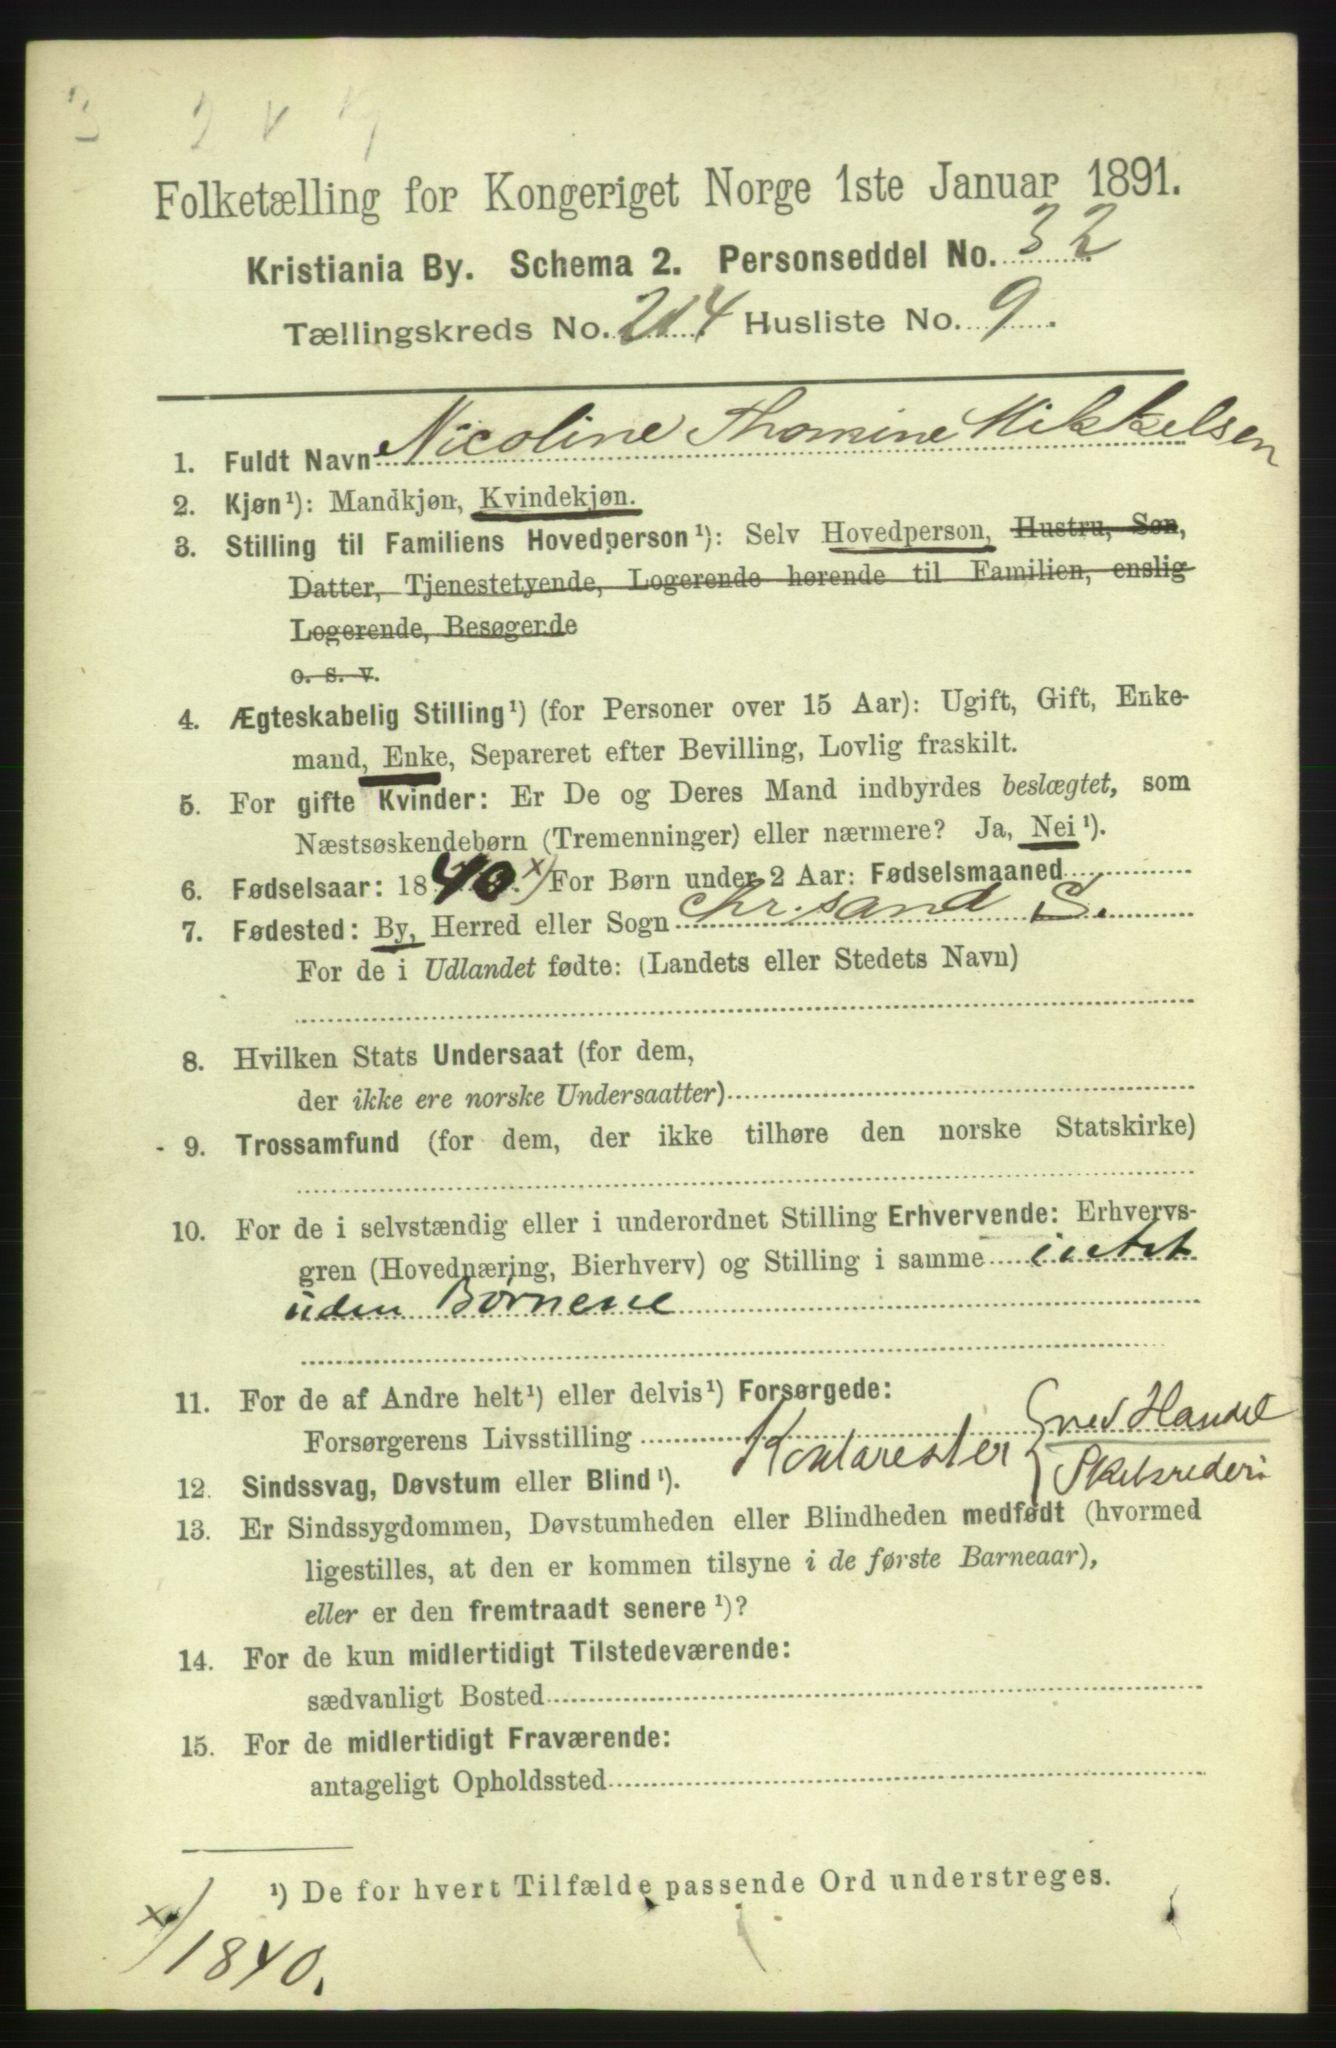 Folketælling for Kongeriget Norge 1ste Januar 1891.
Kristiania By. Schema 2. Personseddel No. 32
Tællingskreds No. 214 Husliste No. 9.
1. Fuldt Navn Nicoline Thomine Mikkelsen
2. Kjøn¹): Mandkjøn, Kvindekjøn.
3. Stilling til Familiens Hovedperson¹): Selv Hovedperson, Hustru, Søn,
Datter, Tjenestetyende, Logerende hørende til Familien, enslig
Logerende, Besøgende
o. s. v.
4. Ægteskabelig Stilling¹) (for Personer over 15 Aar): Ugift, Gift, Enke-
mand, Enke, Separeret efter Bevilling, Lovlig fraskilt.
5. For gifte Kvinder: Er De og Deres Mand indbyrdes beslægtet, som
Næstsøskendebørn (Tremenninger) eller nærmere? Ja, Nei¹).
6. Fødselsaar: 1840 x) For Børn under 2 Aar: Fødselsmaaned
7. Fødested: By, Herred eller Sogn Chr.sand S.
For de i Udlandet fødte: (Landets eller Stedets Navn)
8. Hvilken Stats Undersaat (for dem,
der ikke ere norske Undersaatter)
9. Trossamfund (for dem, der ikke tilhøre den norske Statskirke)
10. For de i selvstændig eller i underordnet Stilling Erhvervende: Erhvervs-
gren (Hovednæring, Bierhverv) og Stilling i samme intet
uden Børnene
11. For de af Andre helt¹) eller delvis¹) Forsørgede:
Forsørgerens Livsstilling Kontorester { ved Handel
Skibsrederi
12. Sindssvag, Døvstum eller Blind¹).
13. Er Sindssygdommen, Døvstumheden eller Blindheden medfødt (hvormed
ligestilles, at den er kommen tilsyne i de første Barneaar),
eller er den fremtraadt senere¹)?
14. For de kun midlertidigt Tilstedeværende:
sædvanligt Bosted
15. For de midlertidigt Fraværende:
antageligt Opholdssted
¹) De for hvert Tilfælde passende Ord understreges.
x) 1840.